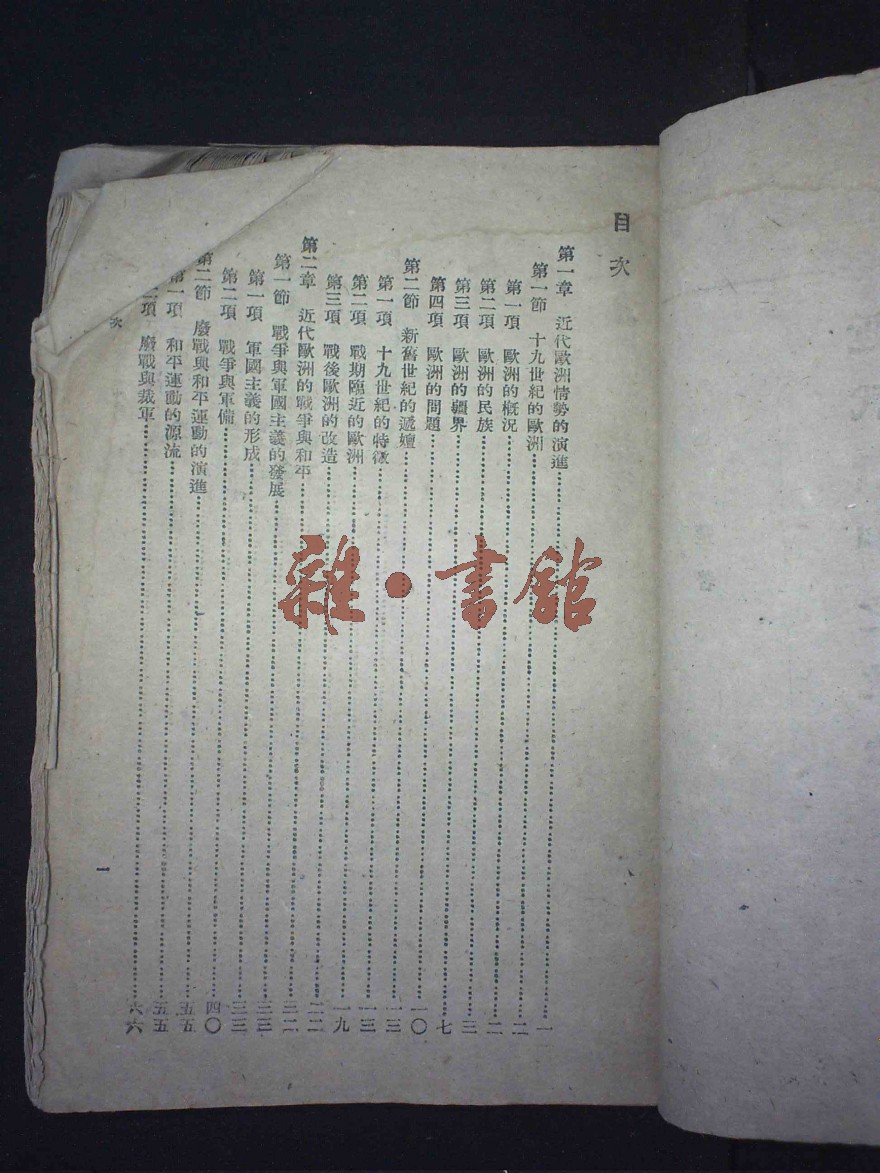 目次
第一章 近代歐洲情勢的演進……一
第一節 十九世紀的歐洲……二
第一項 歐洲的概況……二
第二項 歐洲的民族……三
第三項 歐洲的疆界……七
第四項 歐洲的問題……一〇
第二節 新舊世紀的遞嬗……一三
第一項 十九世紀的特徵……一三
第二項 戰期臨近的歐洲……一九
第三項 戰後歐洲的改造……二二
第二章 近代歐洲的戰爭與和平……三二
第一節 戰爭與軍國主義的發展……三三
第一項 軍國主義的形成……三三
第二項 戰爭與軍備……四〇
第二節 廢戰與和平運動的演進……五五
第一項 和平運動的源流……五五
二項 廢戰與裁軍……六六
次
一
雜·書館